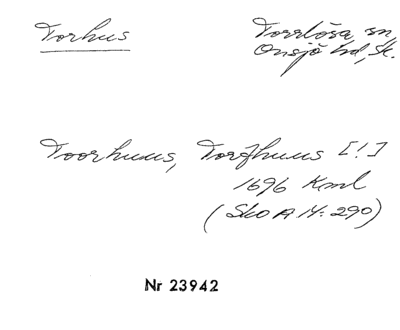 Torhus
Torrlösa sn,
Onsjö hd, Sk.
Toorhuus, Torfhuus [!]
1696 Kml
(Sko A 14: 290)
Nr 23942